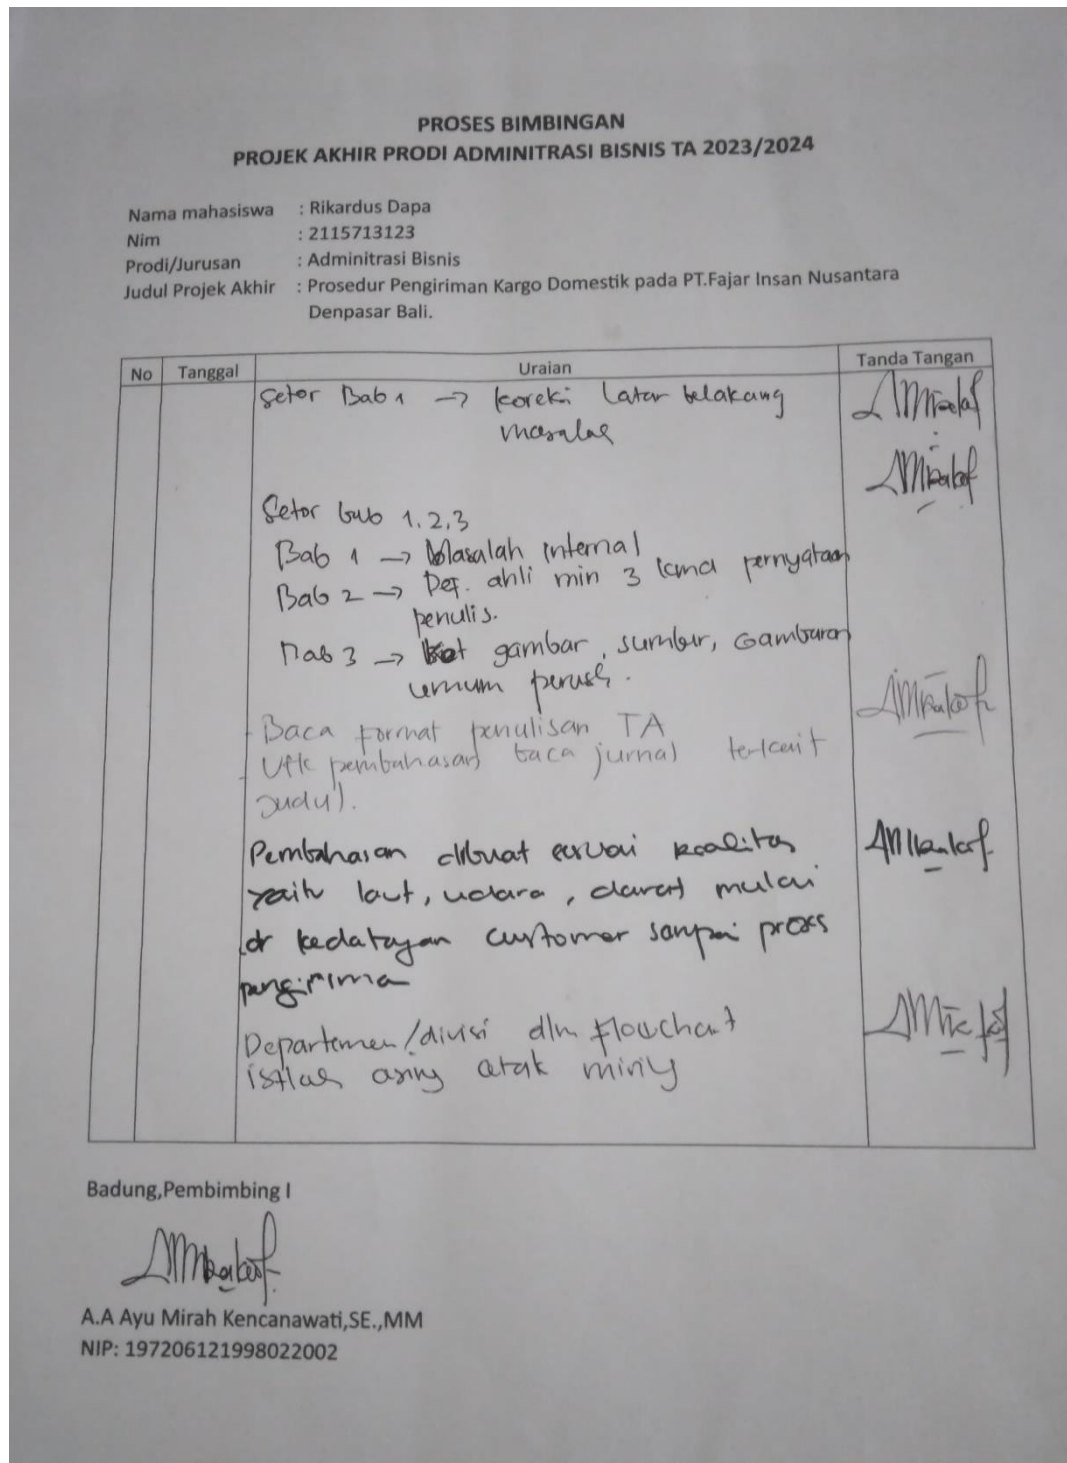 PROSES BIMBINGAN
PROJEK AKHIR PRODI ADMINITRASI BISNIS TA 2023/2024
Nama mahasiswa : Rikardus Dapa
Nim : 2115713123
Prodi/Jurusan : Adminitrasi Bisnis
Judul Projek Akhir : Prosedur Pengiriman Kargo Domestik pada PT.Fajar Insan Nusantara
Denpasar Bali.
No Tanggal Uraian Tanda Tangan
Setor Bab 1 → koreksi latar belakang
masalah
Setor bab 1,2,3
Bab 1 → Masalah internal
Bab 2 → Def. ahli min 3 pernyataan
penulis.
Bab 3 → gambar, sumber, Gambaran
umum perush.
- Baca format penulisan TA
- Utk pembahasan baca jurnal terkait
judul.
Pembahasan dibuat sesuai realitas
yaitu laut, udara, darat mulai
dr kedatagan customer sampai proses
pengirima
Departemen/divisi dlm flowchart
istlah asing cetak miring
Badung,Pembimbing I
A.A Ayu Mirah Kencanawati,SE.,MM
NIP: 197206121998022002